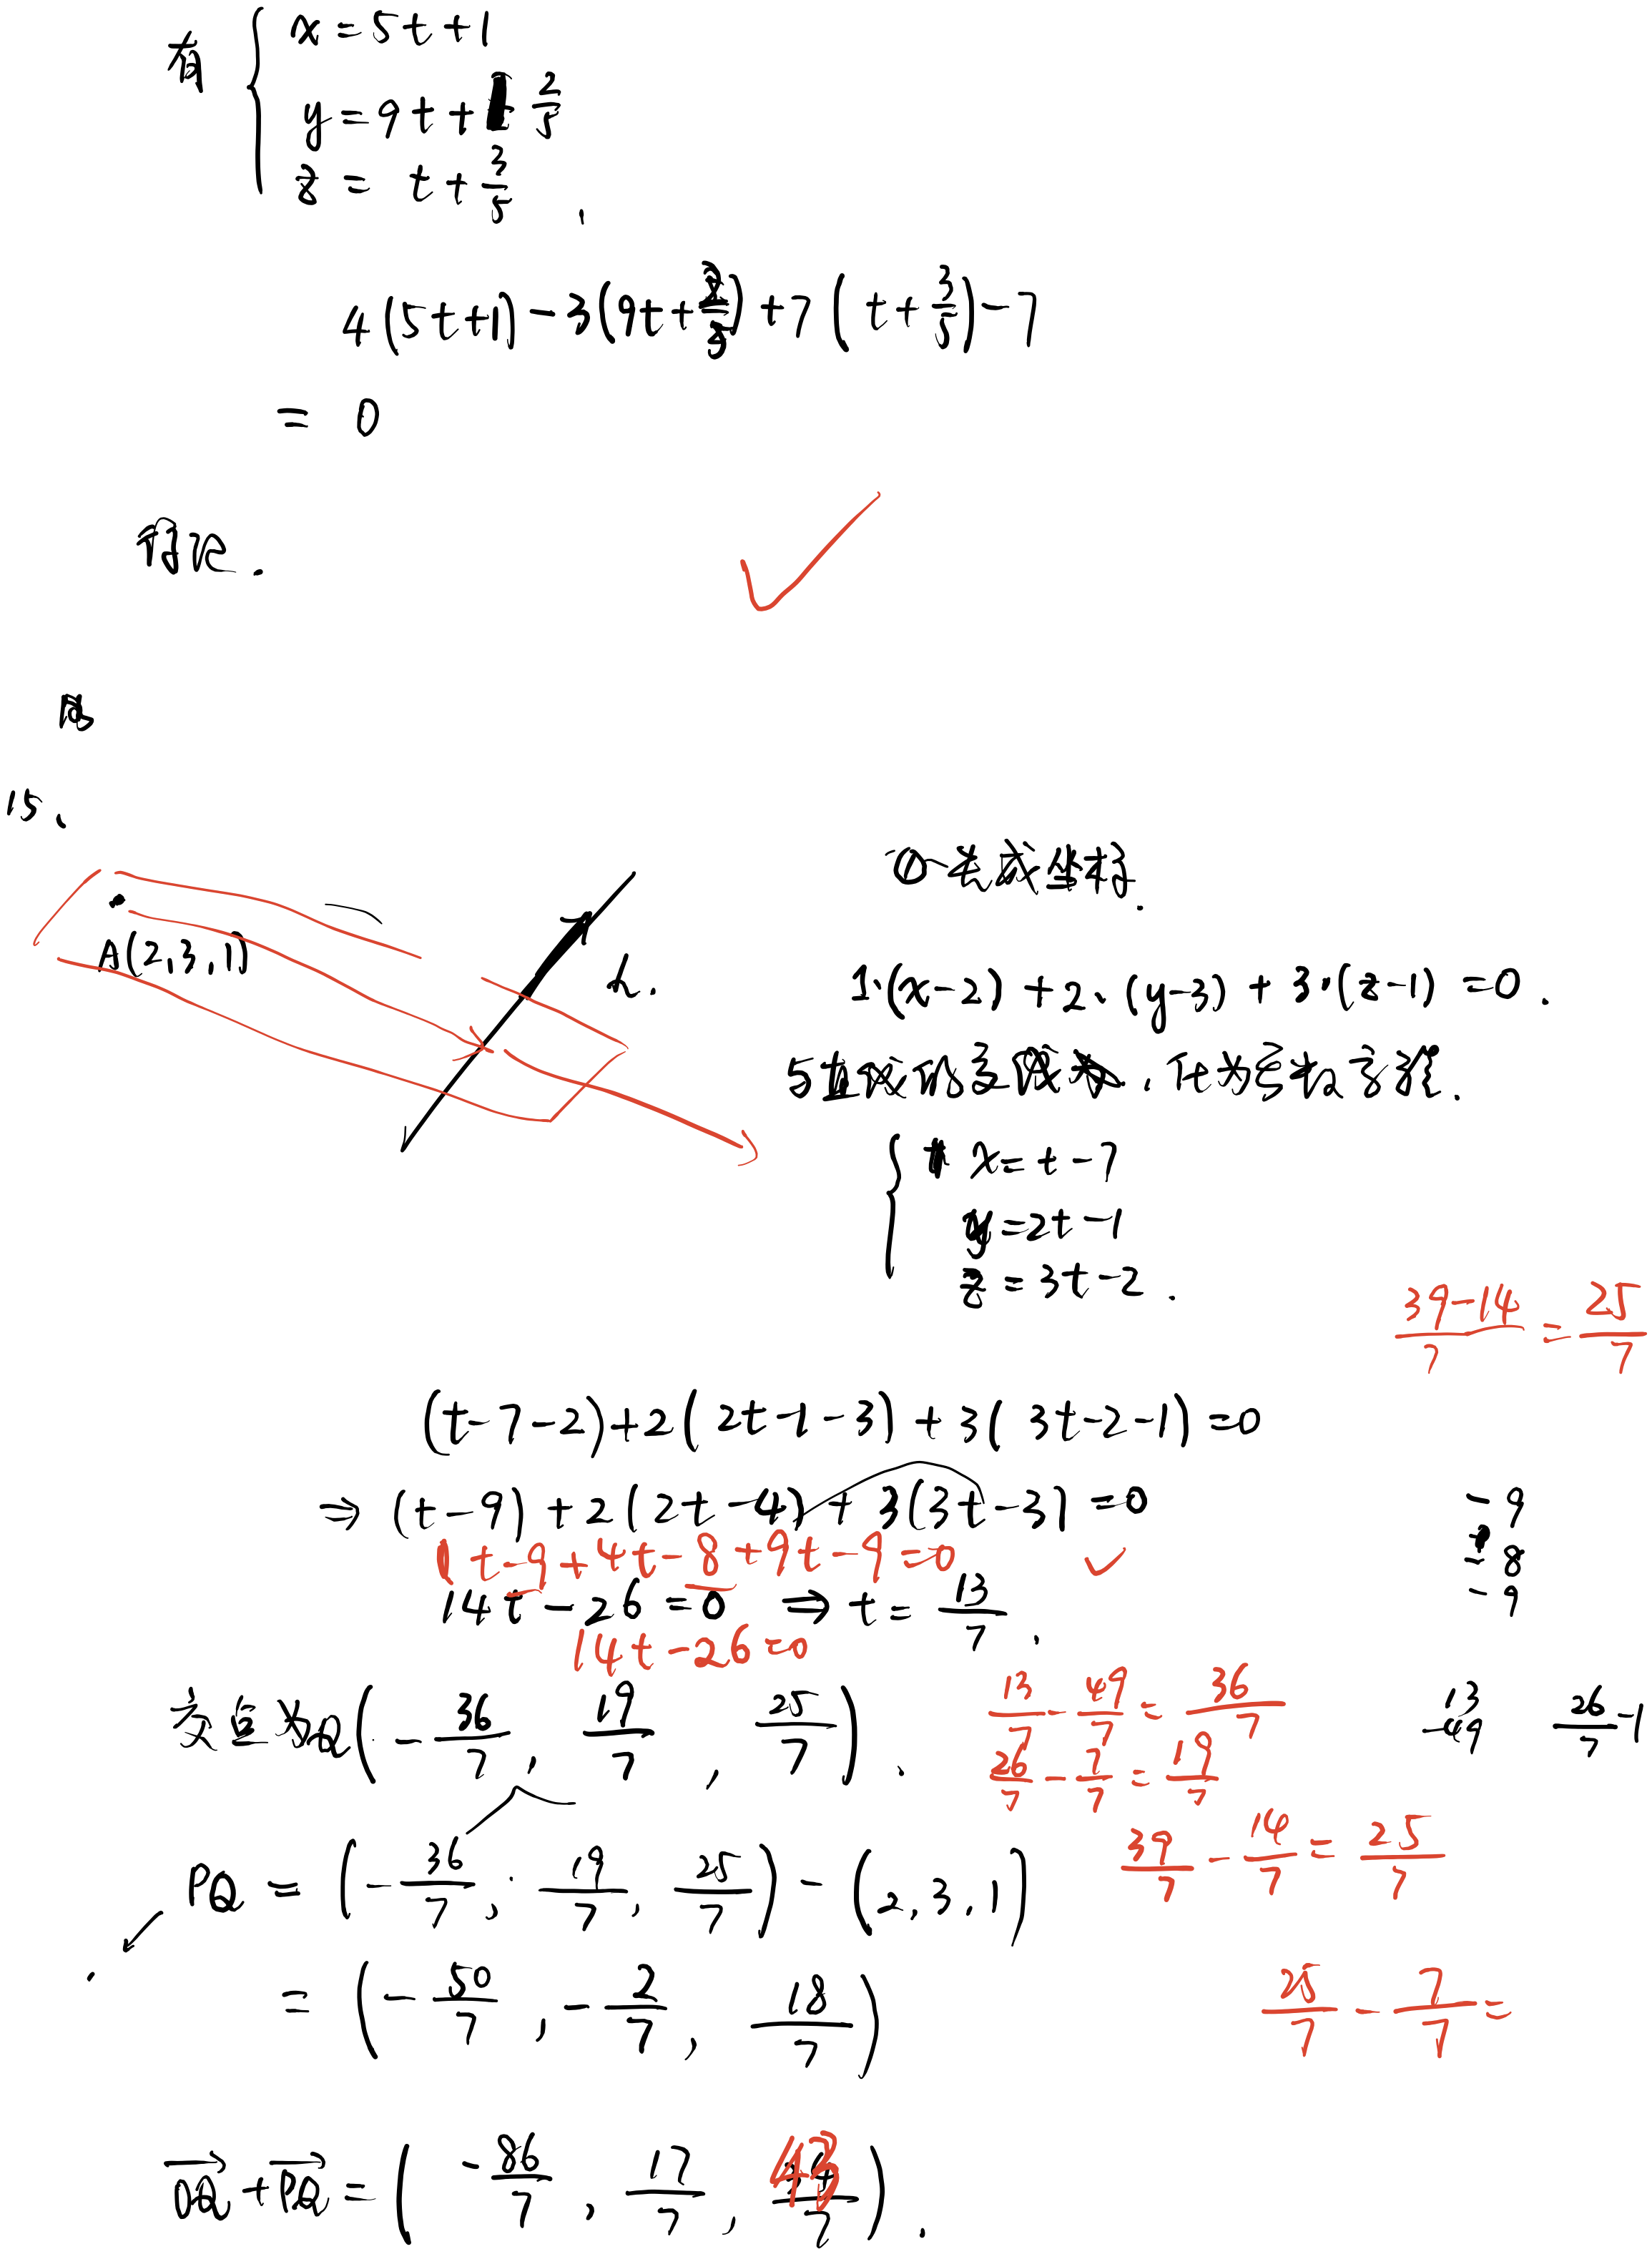 有 { x = 5t + 1
y = 9t + 2/5
z = t + 3/5 .
4(5t+1) - 3(9t + 2/5) + 7(t + 3/5) - 7
= 0
得证.
15、
A(2,3,1)
h.
1·(x-2) + 2·(y-3) + 3·(z-1) = 0 .
{ x = t - 7
y = 2t - 1
z = 3t - 2 .
(39-14)/7 = 25/7
(t-7-2) + 2(2t-1-3) + 3(3t-2-1) = 0
⇒ (t-9) + 2(2t-4) + 3(3t-3) = 0
- 9
- 8
- 9
t-9+4t-8+9t-9=0
14t - 26 = 0 ⇒ t = 13/7 .
14t-26=0
交点为Q(-36/7, 19/7, 25/7) .
13/7 - 49/7 = 36/7
26/7 - 7/7 = 19/7
13
-49
26/7 - 1
39/7 - 14/7 = 25/7
PQ = (-36/7, 19/7, 25/7) - (2,3,1)
= (-50/7, -2/7, 18/7)
25/7 - 7/7 =
OQ + PQ = (-86/7, 17/7, 43/7) .